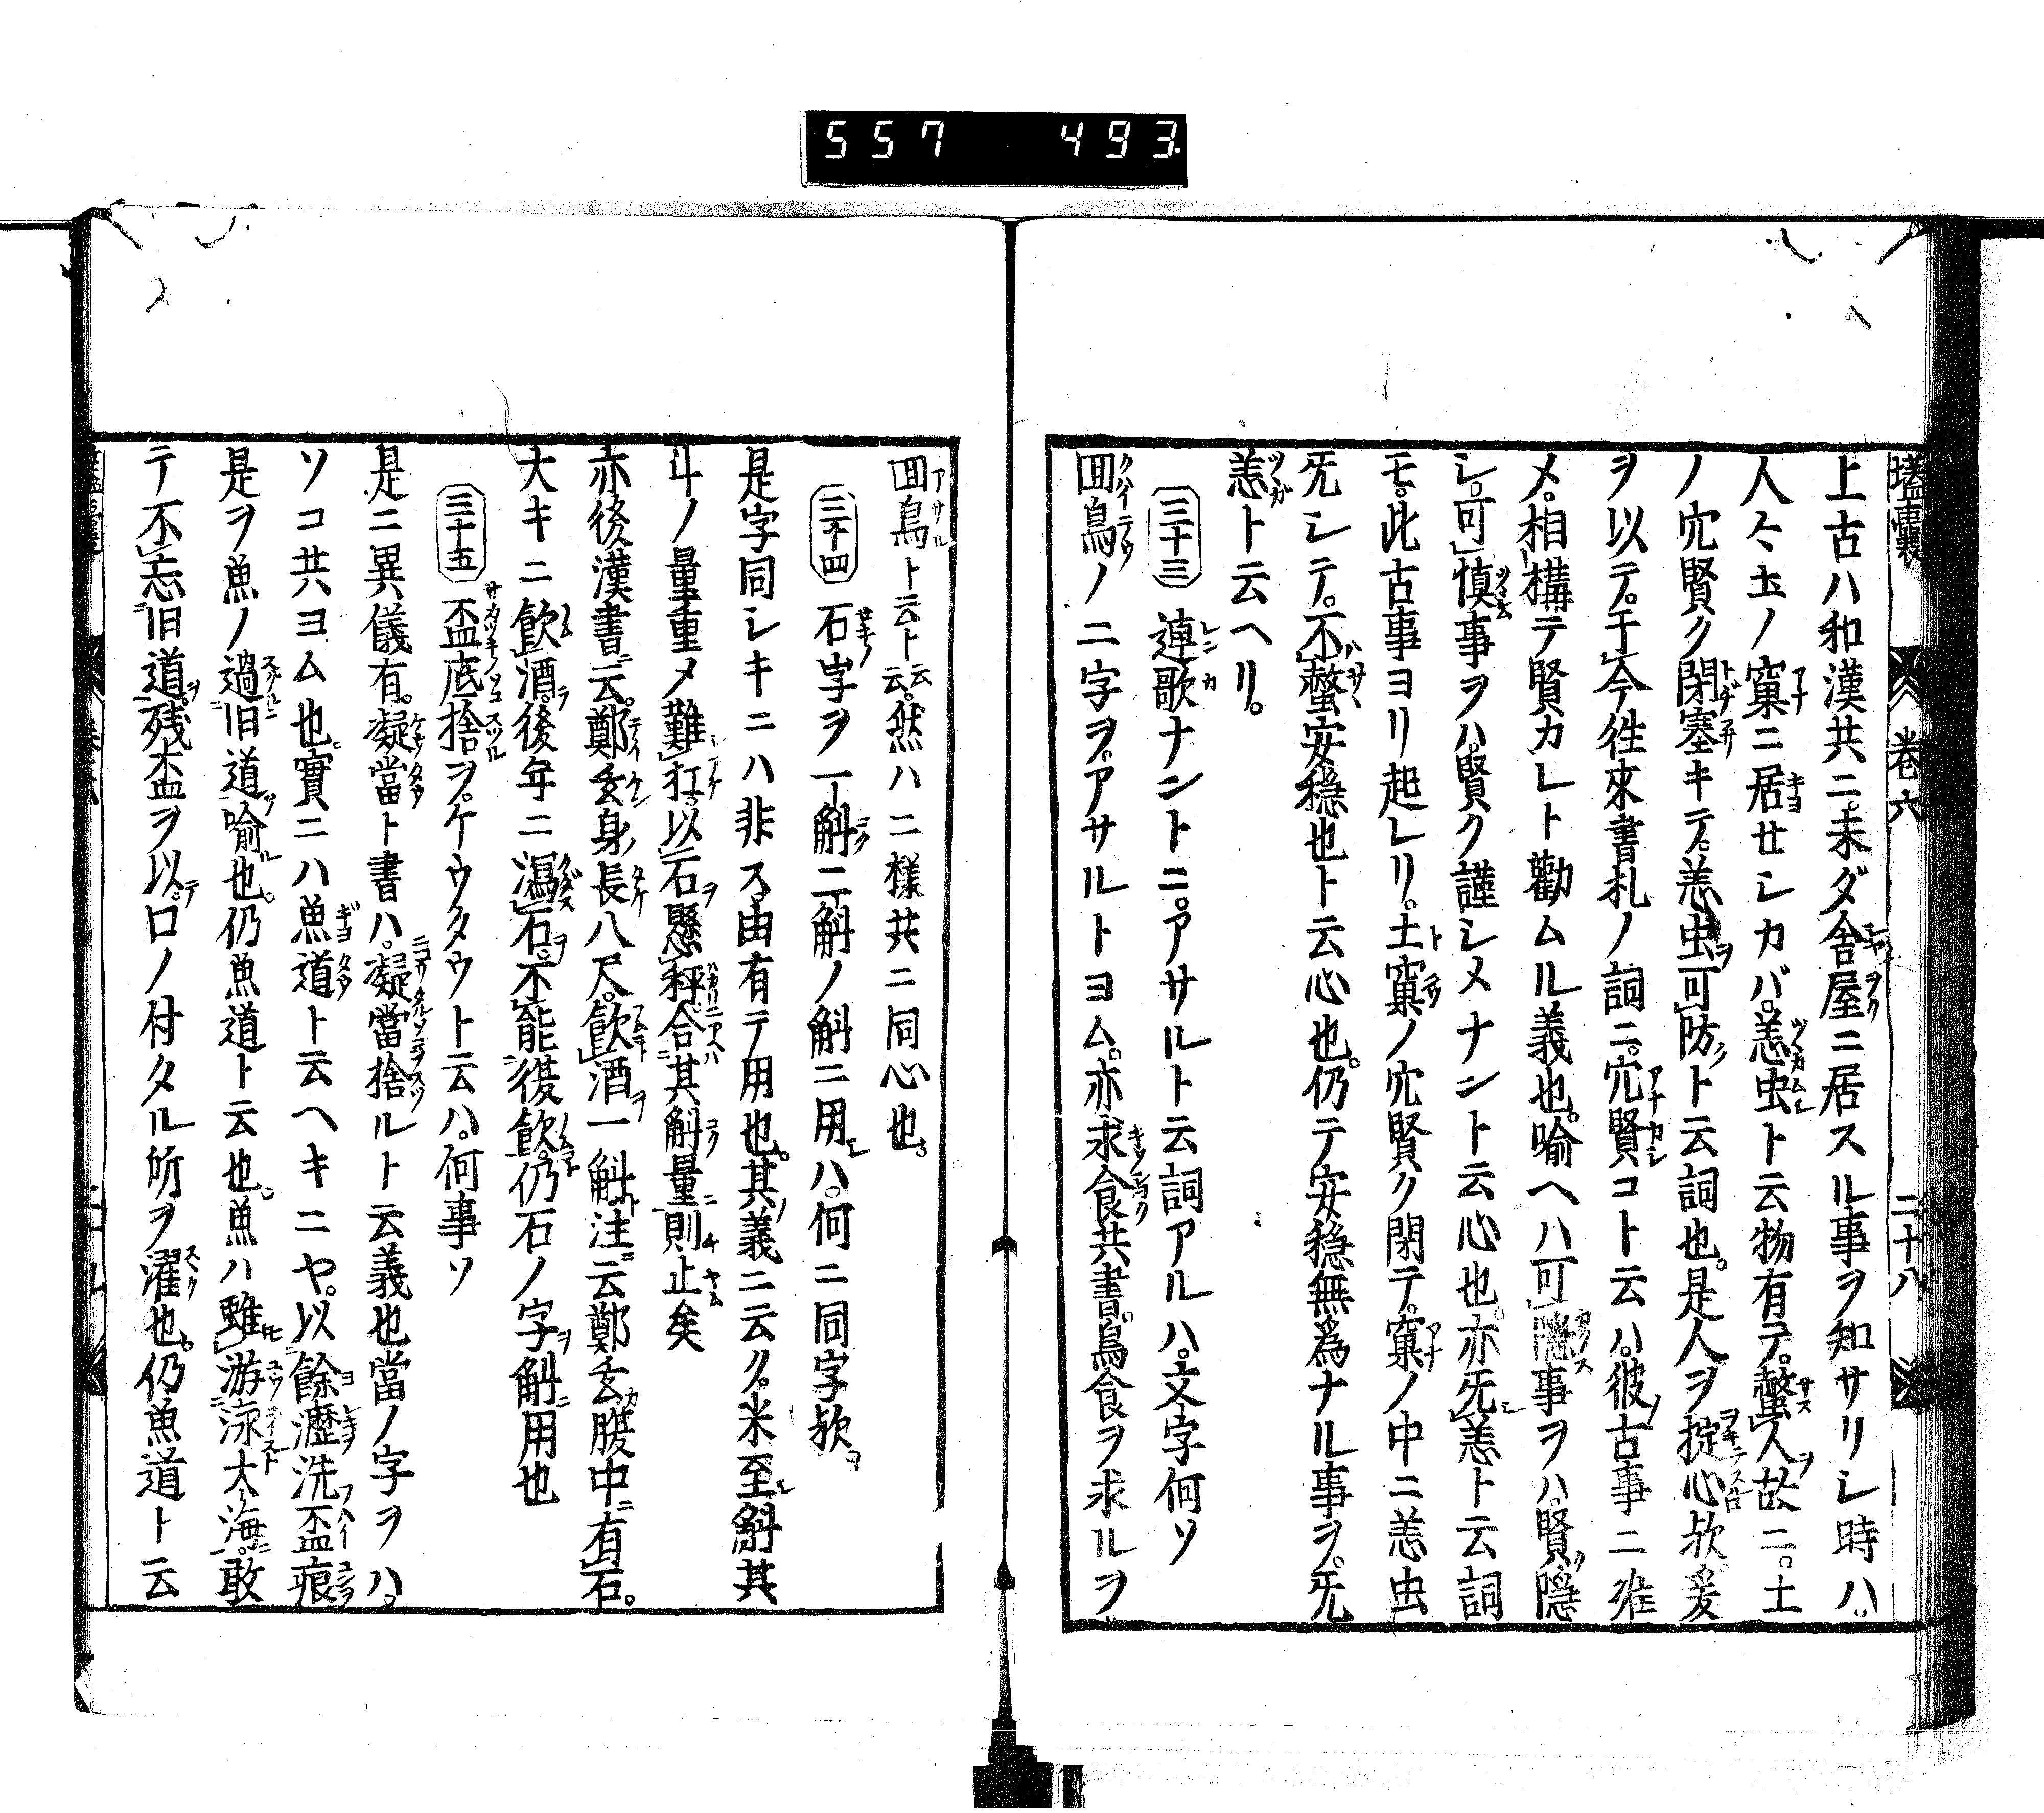 557 493
壒囊 卷六 二十八
上古ハ和漢共ニ未ダ舎屋ニ居スル事ヲ知サリシ時ハ
人々土ノ窠ニ居セシカバ恙虫ト云物有テ螫人故ニ土
ノ穴賢ク閉塞キテ恙虫可防ト云詞也是人ヲ掟心歟爰
ヲ以テ于今徃來書札ノ詞ニ穴賢コト云ハ彼古事ニ准
メ相構テ賢カレト勸ムル義也喻ヘハ可隱事ヲハ賢隱
シ可慎事ヲハ賢ク謹シメナント云心也亦旡恙ト云詞
モ此古事ヨリ起レリ土窠ノ穴賢ク閉テ窠ノ中ニ恙虫
旡シテ不螫安穏也ト云心也仍テ安穏無爲ナル事ヲ旡
恙ト云ヘリ
三十三 連歌ナントニアサルト云詞アルハ文字何ソ
囬鳥ノ二字ヲアサルトヨム亦求食共書鳥食ヲ求ルヲ
囬鳥ト云ト云云然ハ二様共ニ同心也
三十四 石字ヲ一斛二斛ノ斛ニ用ハ何ニ同字歟
是字同シキニハ非ス由有テ用也其義ニ云ク米至斛其
斗ノ量重メ難扛以石懸秤合其斛量則止矣
亦後漢書云鄭玄身長八尺飲酒一斛注云鄭玄腹中有石
大キニ飲酒後年ニ瀉石不能復飲仍石ノ字斛用也
三十五 盃底捨ヲケウタウト云ハ何事ソ
是ニ異儀有凝當ト書ハ凝當捨ルト云義也當ノ字ヲハ
ソコ共ヨム也實ニハ魚道ト云ヘキニヤ以餘瀝洗盃痕
是ヲ魚ノ過旧道喻也仍魚道ト云也魚ハ雖游泳大海敢
テ不忘旧道残盃ヲ以口ノ付タル所ヲ濯也仍魚道ト云